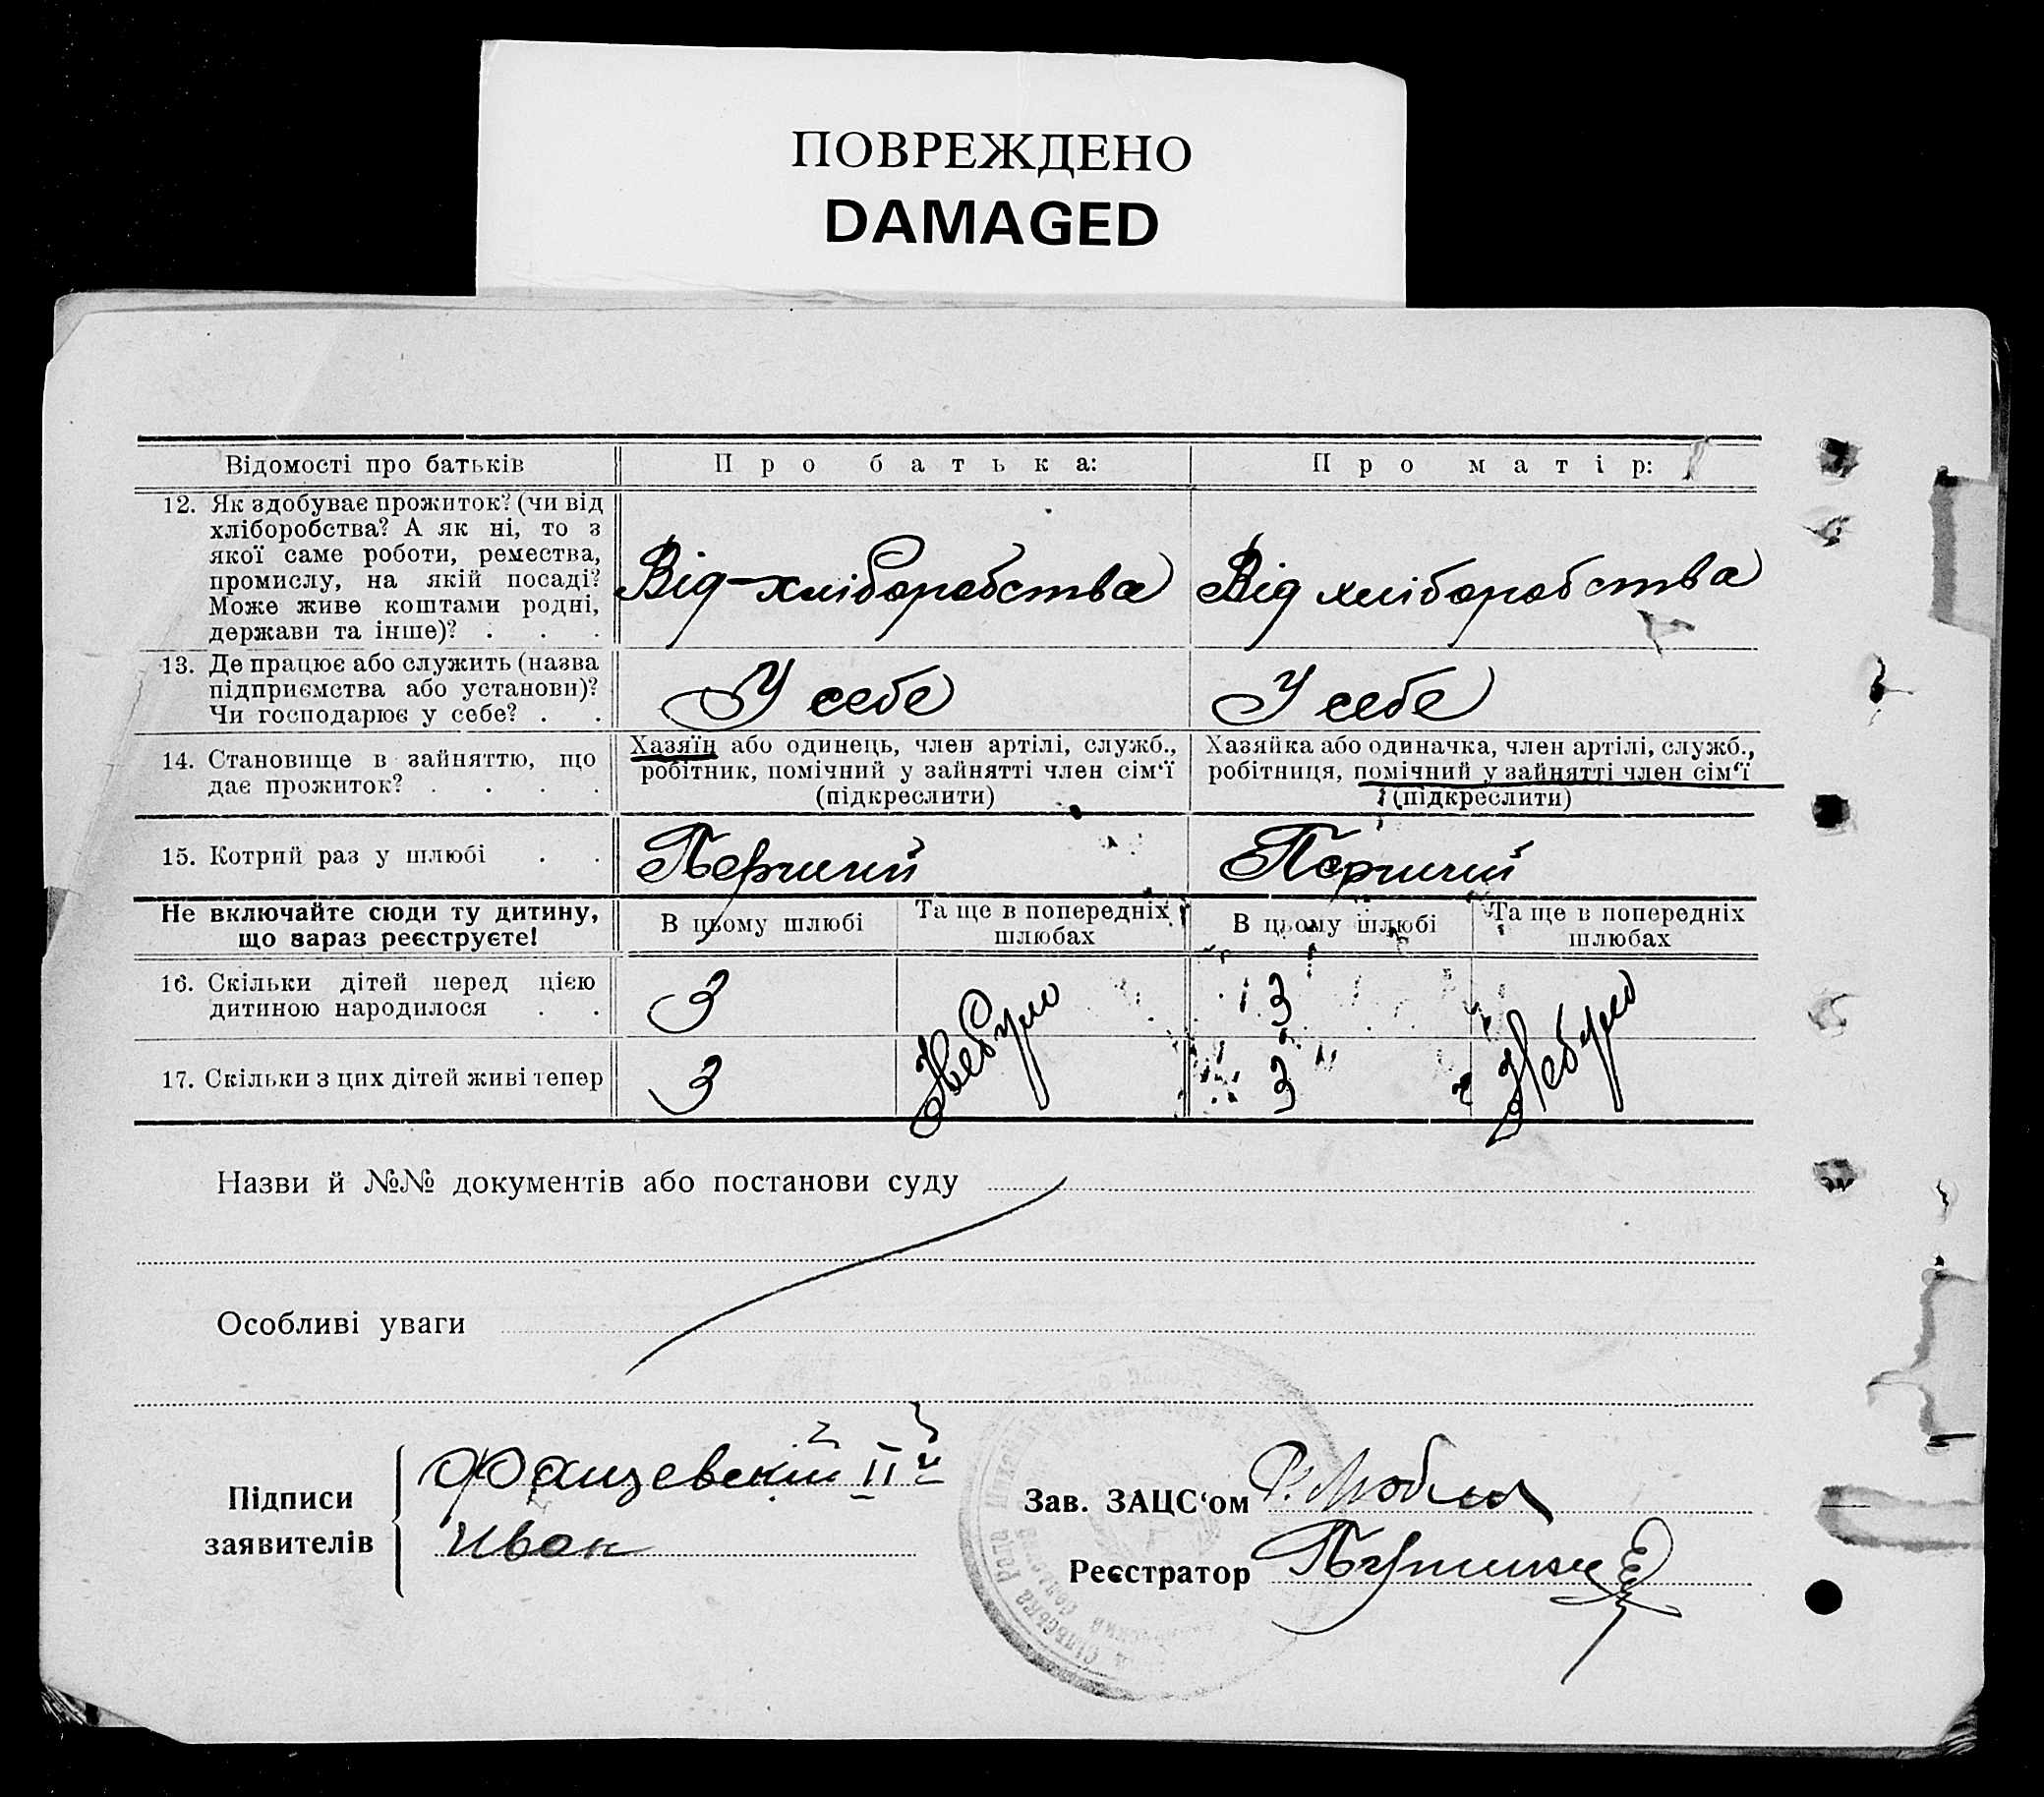 ПОВРЕЖДЕНО
DAMAGED
Відомості про батьків
Про батька:
Про матір:
12. Як здобуває прожиток? (чи від
хліборобства? А як ні, то з
якої саме роботи, ремества,
промислу, на якій посаді?
Може живе коштами родні,
держави та інше)? . . .
Від-хліборобства
Від хліборобства
13. Де працює або служить (назва
підприємства або установи)?
Чи господарює у себе? . .
У себе
У себе
14. Становище в зайняттю, що
дає прожиток? . . . .
Хазяїн або одинець, член артілі, служб.,
робітник, помічний у зайнятті член сім'ї
(підкреслити)
Хазяйка або одиначка, член артілі, служб.,
робітниця, помічний у зайнятті член сім'ї
(підкреслити)
15. Котрий раз у шлюбі . .
Перший
Перший
Не включайте сюди ту дитину,
що зараз реєструєте!
В цьому шлюбі
Та ще в попередніх
шлюбах
В цьому шлюбі
Та ще в попередніх
шлюбах
16. Скільки дітей перед цією
дитиною народилося . .
3
Небуло
3
Небуло
17. Скільки з цих дітей живі тепер
3
3
Назви й №№ документів або постанови суду
Особливі уваги
Підписи
заявителів
Иван
Зав. ЗАЦС'ом
Реєстратор
Сільська Рада